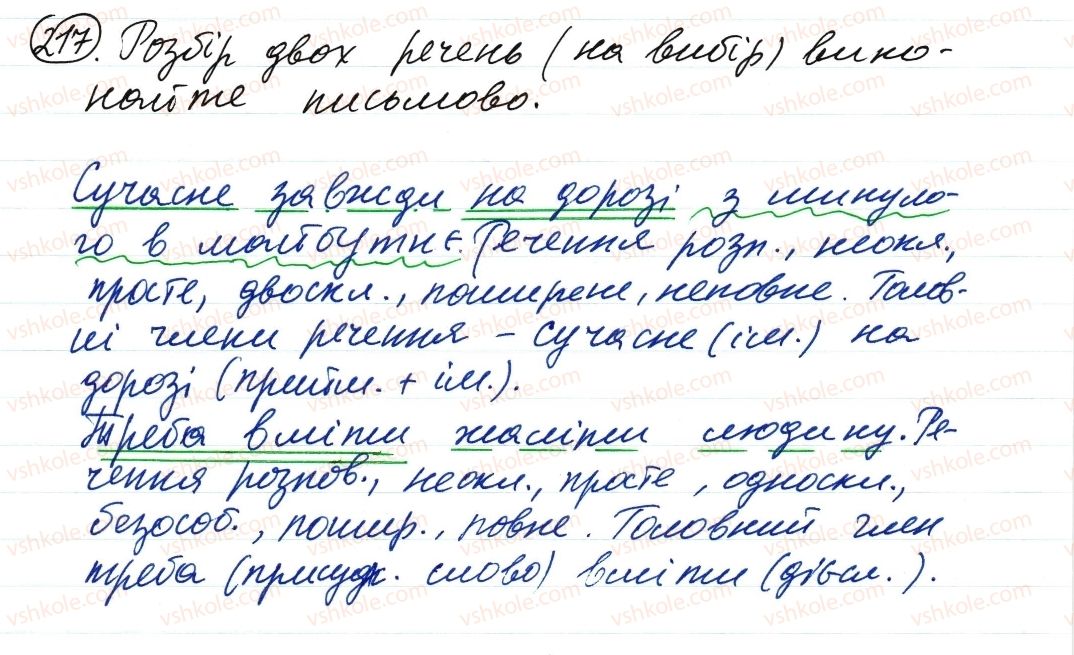 217. Розбір двох речень (на вибір) вико-
найте письмово.
Сучасне завжди на дорозі з минуло-
го в майбутнє. Речення розп., неокл.,
просте, двоскл., поширене, неповне. Голов-
ні члени речення – сучасне (ім.) на
дорозі (прийм. + ім.).
Треба вміти жаліти людину. Ре-
чення розпов., неокл., просте, односкл.,
безособ., пошир., повне. Головний член
треба (присудк. слово) вміти (дієсл.).